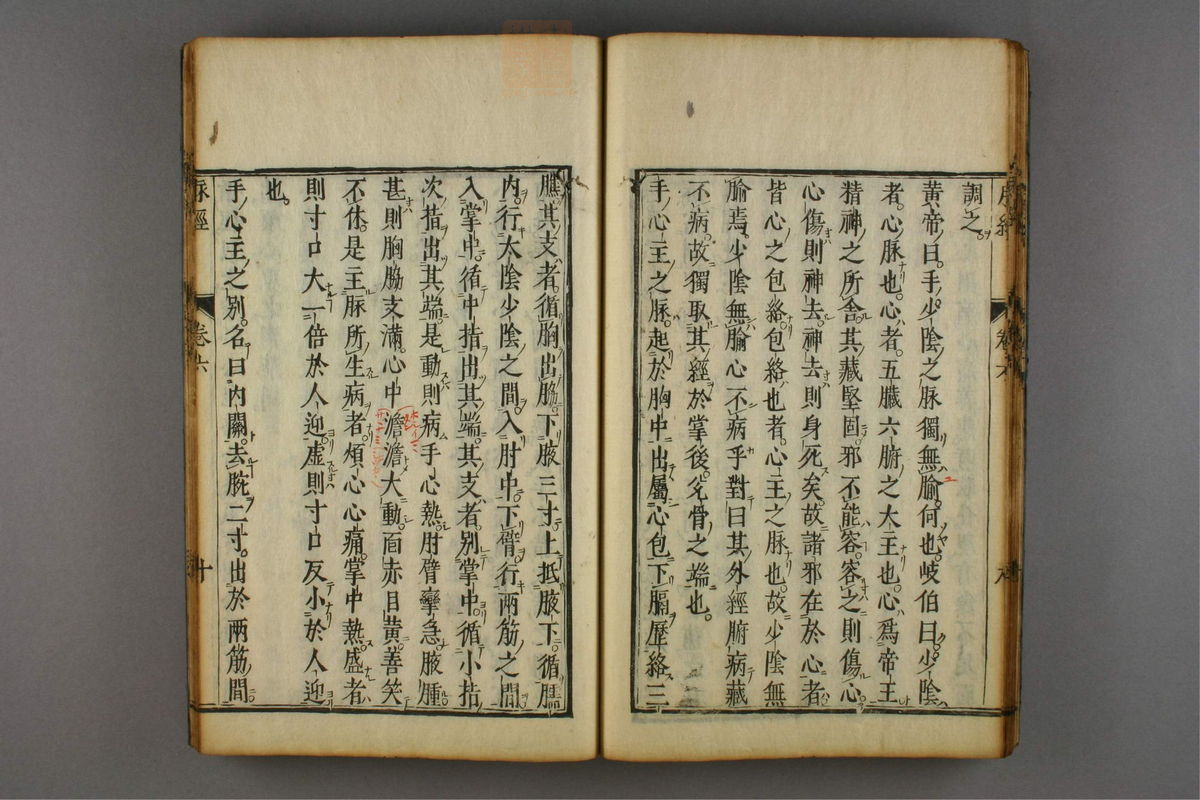 調之。
黃帝曰。手少陰之脉獨無腧何也。岐伯曰。少陰
者。心脉也。心者。五臟六腑之大主也。心爲帝王
精神之所舍。其藏堅固。邪不能容。容之則傷心。
心傷則神去。神去則身死矣。故諸邪在於心者
皆心之包絡。包絡也者。心主之脉也。故少陰無
腧焉。少陰無腧心不病乎對曰其外經腑病藏
不病。故獨取其經於掌後。兌骨之端也。
手心主之脉。起於胸中出屬心包下膈歷絡三
膲其支者。循胸出脇。下腋三寸。上抵腋下。循臑
內。行太陰少陰之間。入肘中。下臂。行兩筋之間
入掌中。循中指出其端。其支者。別掌中。循小指
次指出其端。是動則病手心熱。肘臂攣急。腋腫
甚則胸脇支滿。心中澹澹大動。面赤目黃。善笑
不休。是主脉所生病者。煩心心痛。掌中熱。盛者
則寸口大一倍於人迎。虛則寸口反小於人迎
也。
手心主之別。名曰內關。去腕二寸。出於兩筋間
脉經
卷六
十